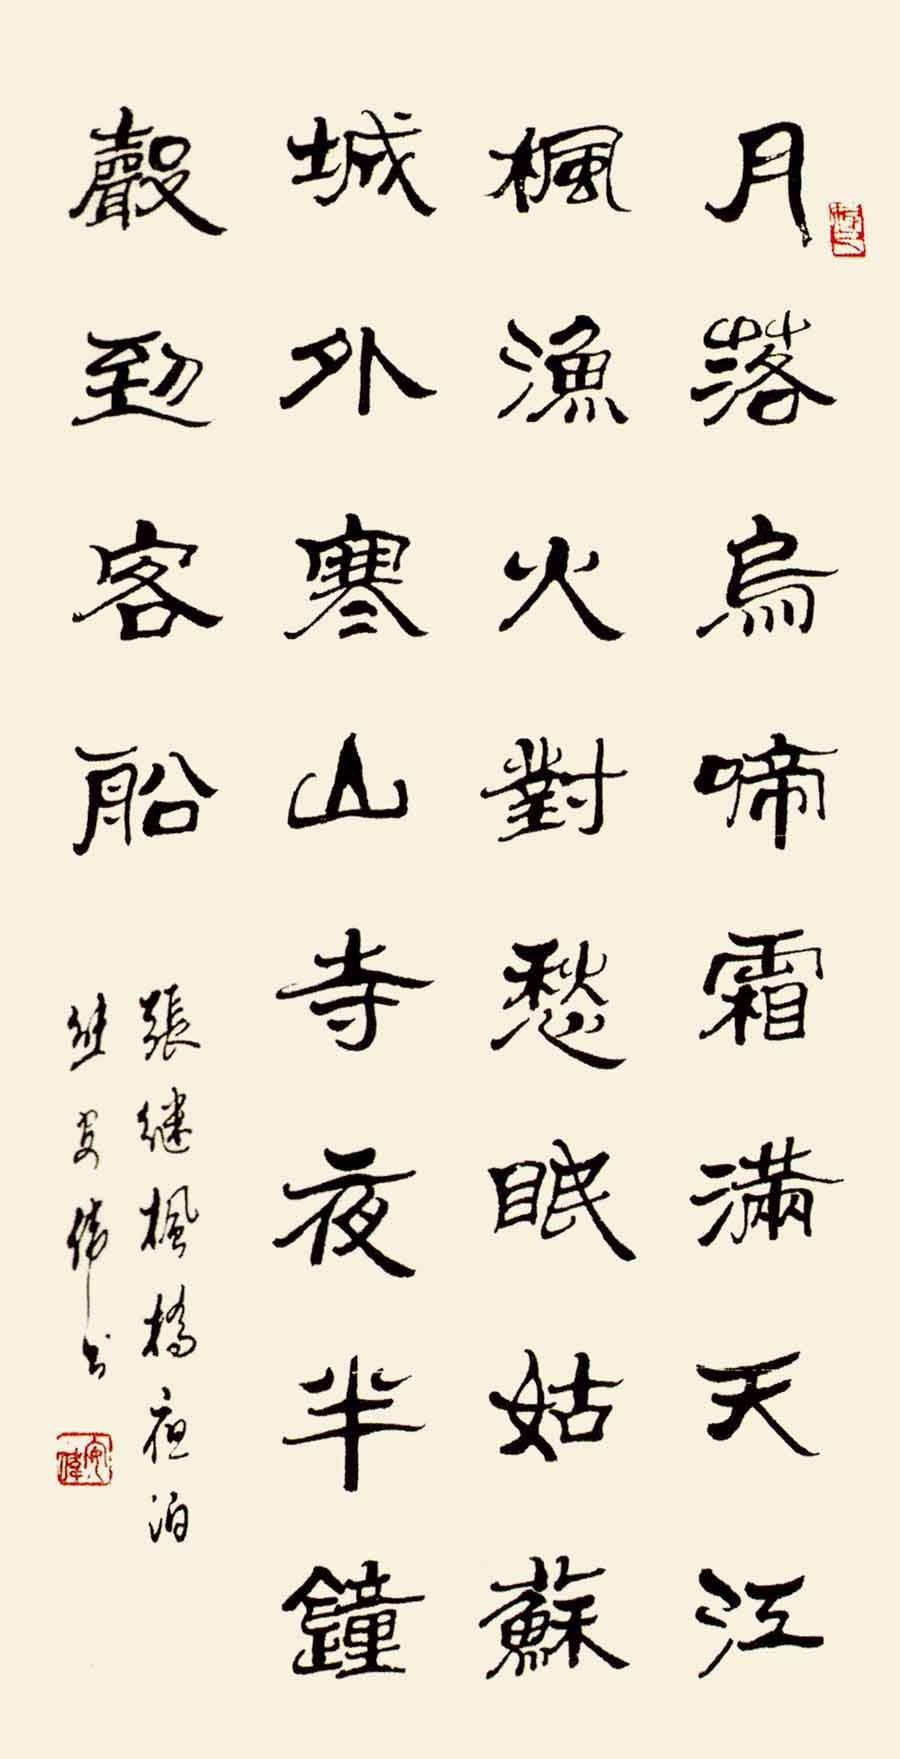 月落烏啼霜滿天江
楓漁火對愁眠姑蘇
城外寒山寺夜半鐘
聲到客船
張繼楓橋夜泊
安偉书
安偉